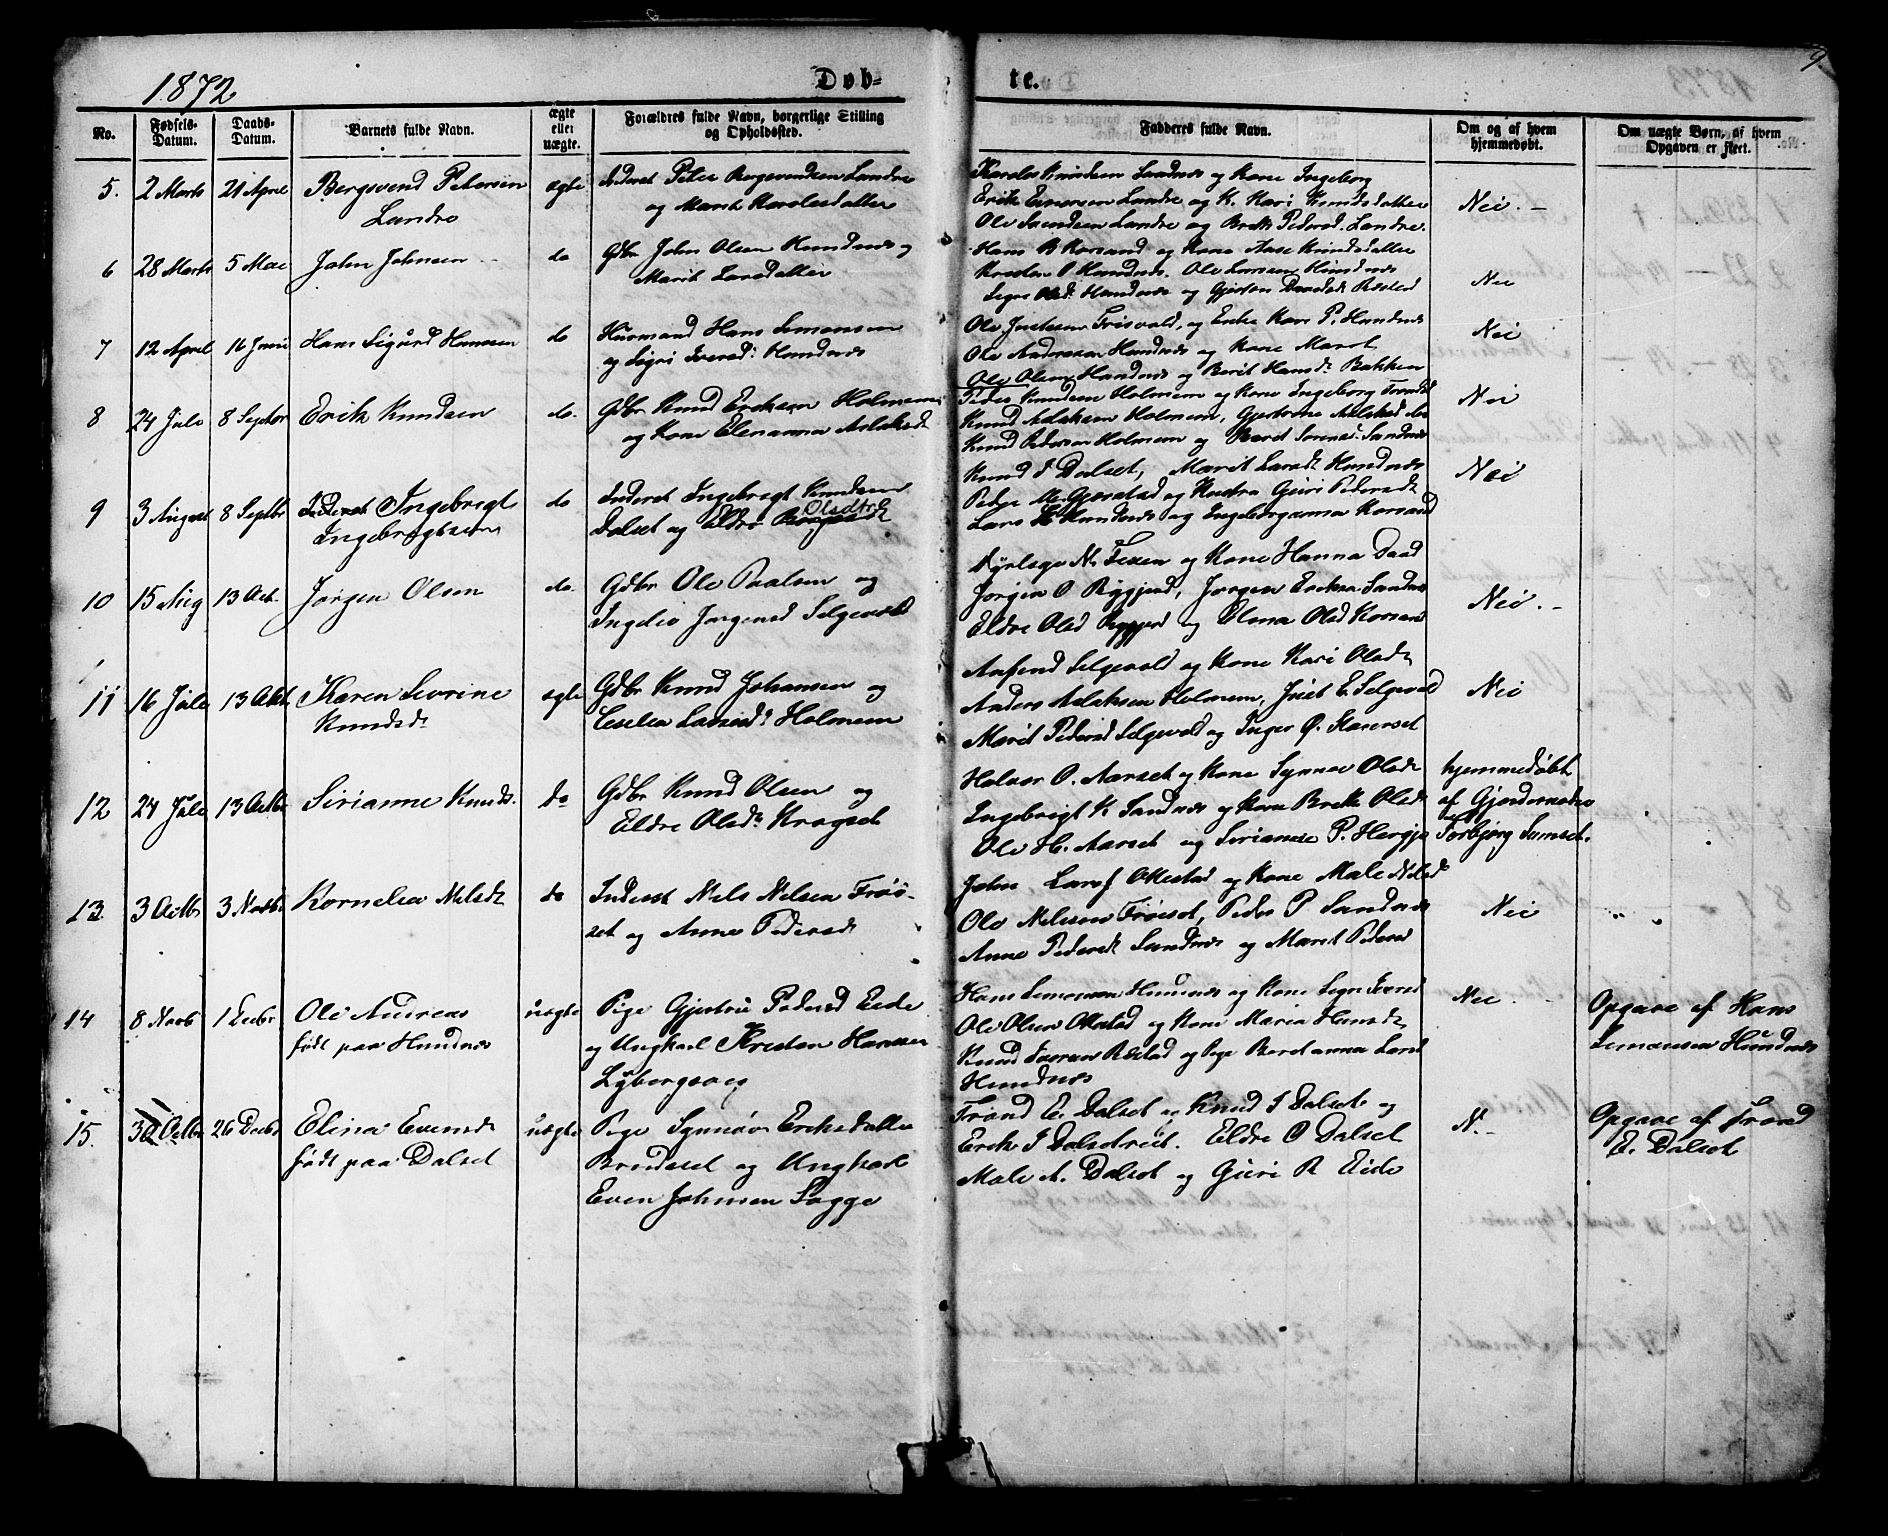 1872
Døb-
te.
9
No.
Fødsels-
Datum.
Daabs-
Datum.
Barnets fulde Navn.
ægte
eller
uægte.
Forældres fulde Navn, borgerlige Stilling
og Opholdssted.
Faddernes fulde Navn.
Om og af hvem
hjemmedøbt.
Om uægte Børn, af hvem
Opgaven er skeet.
5. 2 Marts 21 April Bergsvend Petersen ægte Inderst Peter Bergsvendsen Landre
Landre og Marit Karolesdatter
Karoles Knudsen Sandnes og Kone Ingeborg
Erik Landre og K. Kari Knudsdatter
Ole Landre og Brette Pedersd. Landre.
Nei. -
6 28 Marts 5 Mai John Johnsen do Gdbr John Olsen Hundnes og
Marit Larsdatter
Hans B Korsand og Kone Aase Knudsdatter
Hundnes. Ole Larsen Hundnes
Hundnes og
Nei
7 12 April 16 Juni Hans Sigurd Hansen do Huusmand Hans Simonsen
og Sigri Iversd: Hundnes
Ole Frisvold, og Enke Kari P. Hundnes
Ole Andersen Hundnes og Kone Marit
Ole Olsen Hundnes og Berit Hansd. Bakken
Nei
8 24 Juli 8 Septbr Erik Knudsen do. Gdbr Knud Eriksen Holmem
og Kone Elenanna Aslaksd.
Peder Knudsen Holmem og Kone Ingeborg Trondsd
Knud Aslaksen Holmem, Gjertrine Aslaksd do
Knud Pedersen Holmem og Marit Sandnes
Nei
9 3 August 8 Septbr Inderst Ingebrigt do Inderst Ingebrigt Knudsen
Ingebrigtsen Olsdtr
Dalset og Eldre
Knud I Dalset, Marit Larsd. Hundnes
Peder M. Gjerstad og Hustru Guri Pedersd.
Lars K Hundnes og Ingeborganna Korsand
Nei
10 15 Aug 13 Oct. Jørgen Olsen do. Gdbr Ole Paalsen og
Jørgensd Selgevold
og Kone Hanna Daad
Jørgen O. Ryggjerd, Jørgen Eriksen Sandnes
Eldre Olsd Ryggjerd og Elena Olsd Korsand
Nei. -
11 16 Juli 13 Okt. Karen Sevrine ægte Gdbr Knud Johansen og
Knudsd. Larsd. Holmem
Selgevold og Kone Kari Olsd.
Anders Aslaksen Holmem, E. Selgevold
Marit Pedersd Selgevold og Inger Ø.
Nei
12 24 Juli 13 Octbr Sirianne Knuds. do Gdbr Knud Olsen og
Eldre Olsd. Krogset
Halvor O. Aarset og Kone Synnev Olsd.
Ingebrigt K Sandnes og Kone Brette Olsd.
Ole H. Aarset og Sirianne P. Hergje
hjemmedøbt
af Gjordemoder
Torbjørg
13. 3 Octbr 3 Novbr Kornelia Nilsd. do Inderst Nils Nilsen Frøi-
set og Anne Pedersd.
John Okestad og Kone Male Nilsd
Ole Nilsen Frøiset, Peder P Sandnes
Anne Pedersd. Sandnes og Marit Pedersd
Nei
" "
14 8 Novb 1 Decbr Ole Andreas uægte Pige Gjertrue Pedersd Eide
født paa Hundnes og Ungkarl Kristen Hansen
Lyborgsveg
Hans Simonsen Hundnes og Kone Sigri Iversd
Ole Olsen Okestad og Kone Maria Hansd.
Knud og Pige Beritanna Larsd
Hundnes
Nei. -
Opgave af Hans
Simonsen Hundnes
15. 30 Octbr 26 Decbr Elina Evensd. uægte Pige Synnøv Eriksdatter
født paa Dalset og Ungkarl
Even Johnsen Sogge
Trond E. Dalset og Knud I Dalset og
Erik I Eldre O Dalset
Male A. Dalset og Guri R Eide
N. -
Opgave af Trond
E. Dalset